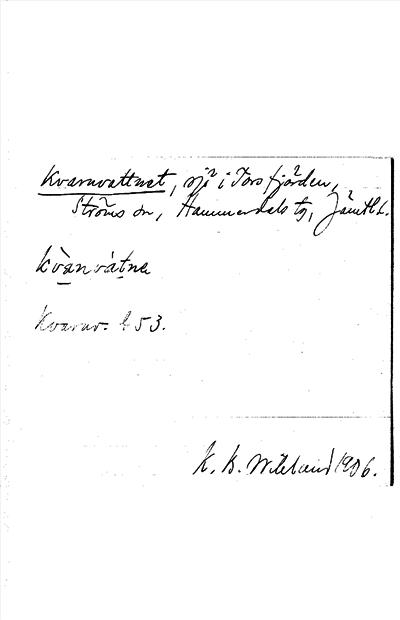 Kvarnvattnet, sjö i Torsfjärden,
Ströms sn, Hammerdals tg, Jämtl. L.
kvànvátne
Kvarnv. 53.
K. B. Wiklund 1906.